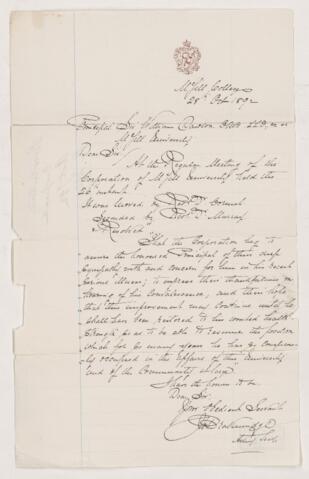 McGill College
28th Oct 1892
Principal Sir William Dawson CMG LLD
McGill University
Dear Sir,
At the Regular Meeting of the
Corporation of McGill University held the
26 instant
It was moved by Prof Cornish
Seconded by Prof Murray
Resolved
That the Corporation beg to
assure the honored Principal of their deep
sympathy with and concern for him in his recent
serious illness; to express their thankfulness on
learning of his convalescence, and their hope
that this improvement may continue until he
shall have been restored to his wonted health
strength so as to be able to resume the position
which for so many years he has so
occupied in the affairs of this University
and of the Community at large
I have the honor to be
Dear Sir
Your Obedient Servant